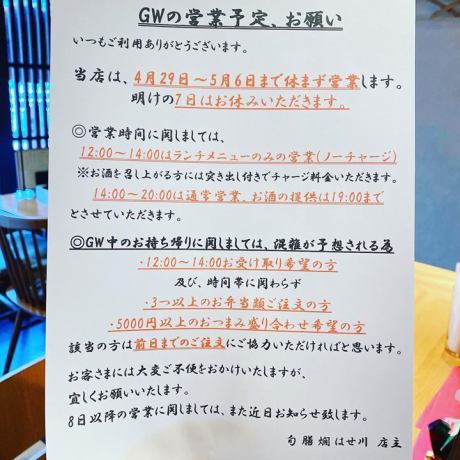 GWの営業予定、お願い
いつもご利用ありがとうございます。
当店は、4月29日～5月6日まで休まず営業します。
明けの7日はお休みいただきます。
◎営業時間に関しましては、
12:00～14:00はランチメニューのみの営業(ノーチャージ)
※お酒を召し上がる方には突き出し付きでチャージ料金いただきます。
14:00～20:00は通常営業、お酒の提供は19:00まで
とさせていただきます。
◎GW中のお持ち帰りに関しましては、混雑が予想される為
・12:00～14:00お受け取り希望の方
及び、時間帯に関わらず
・3つ以上のお弁当類ご注文の方
・5000円以上のおつまみ盛り合わせ希望の方
該当の方は前日までのご注文にご協力いただければと思います。
お客さまには大変ご不便をおかけいたしますが、
宜しくお願いいたします。
8日以降の営業に関しましては、また近日お知らせ致します。
旬膳燗 はせ川 店主